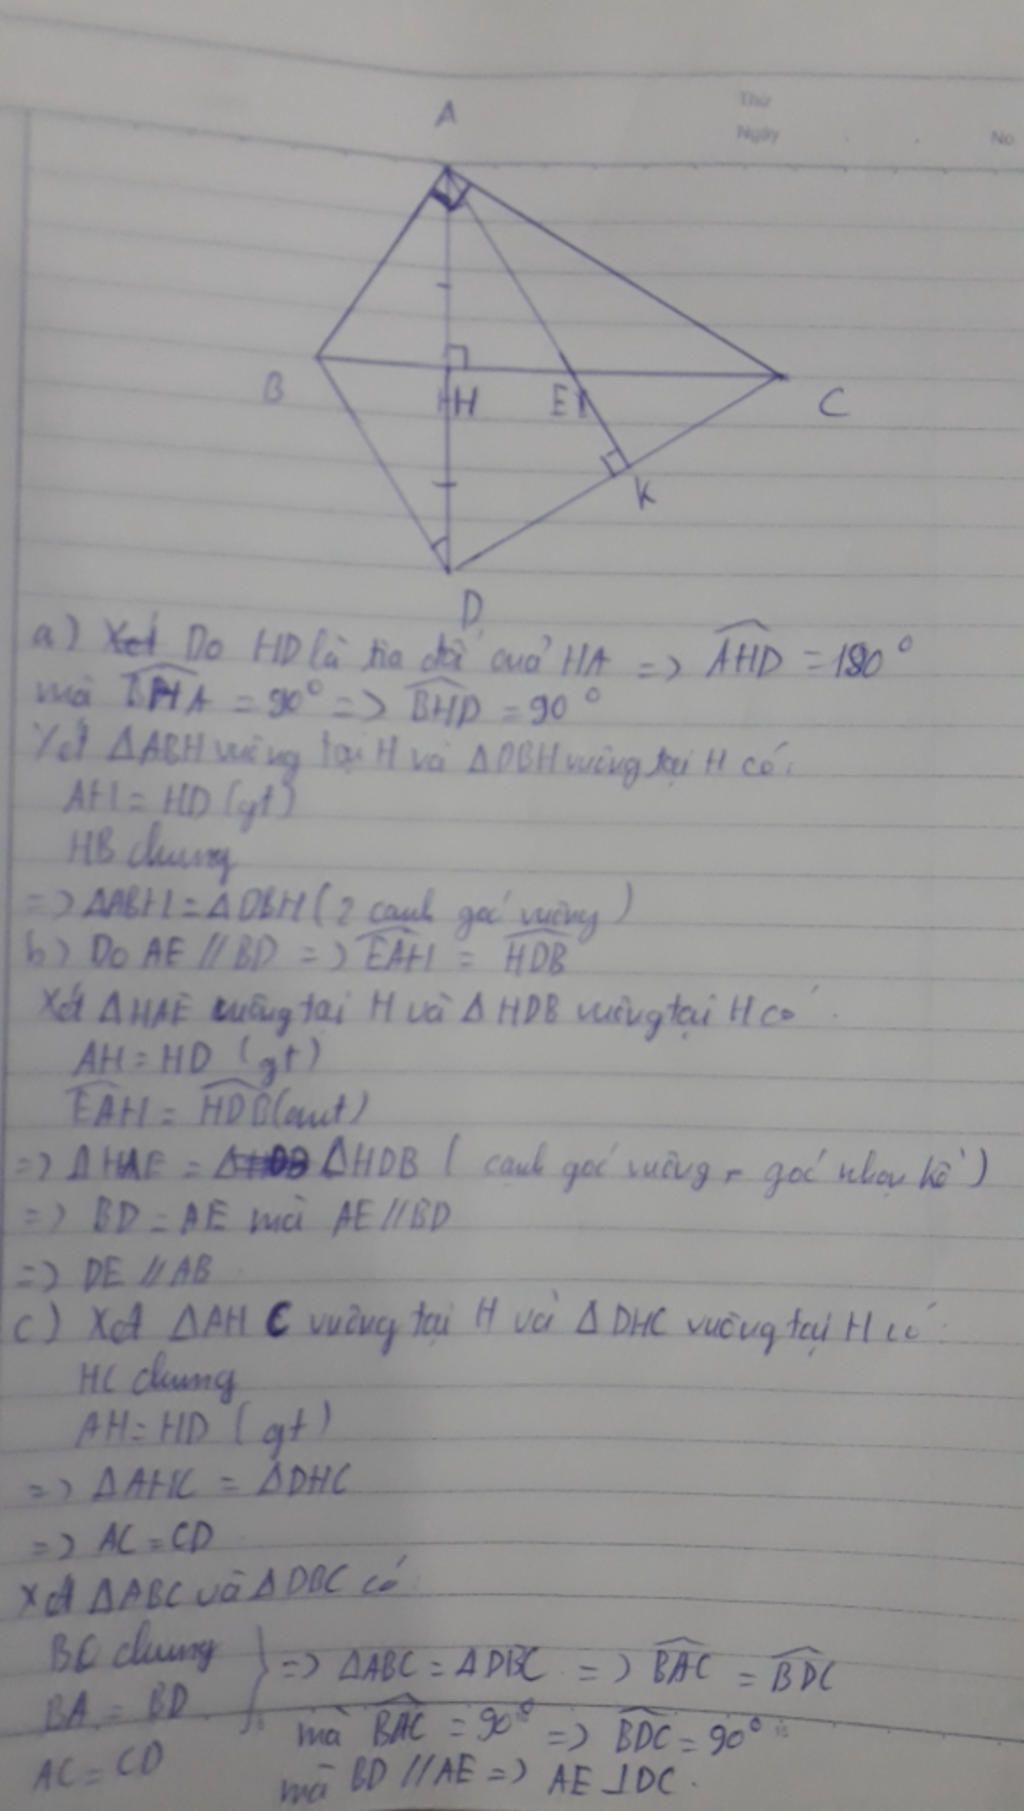 Thứ
Ngày
No
A
B
H
E
C
K
D
a) Xét Do HD là tia đối của HA => AHD = 180°
mà BHA = 90° => BHD = 90°
Xét ΔABH vuông tại H và ΔDBH vuông tại H có:
AH = HD (gt)
HB chung
=> ΔABH = ΔDBH (2 cạnh góc vuông)
b) Do AE // BD => EAH = HDB
Xét ΔHAE vuông tại H và ΔHDB vuông tại H có
AH = HD (gt)
EAH = HDB (cmt)
=> ΔHAE = ΔHDB (cạnh góc vuông - góc nhọn kề)
=> BD = AE mà AE // BD
=> DE // AB
c) Xét ΔAHC vuông tại H và ΔDHC vuông tại H có:
HC chung
AH = HD (gt)
=> ΔAHC = ΔDHC
=> AC = CD
Xét ΔABC và ΔDBC có:
BC chung
BA = BD
AC = CD
=> ΔABC = ΔDBC => BAC = BDC
mà BAC = 90° => BDC = 90°
mà BD // AE => AE ⊥ DC.